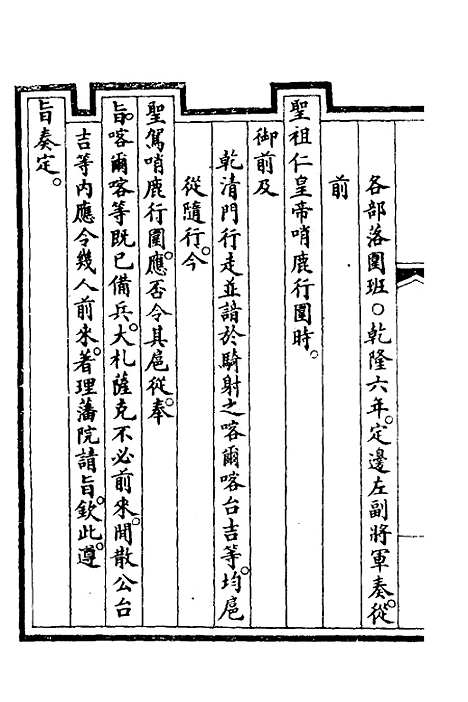 各部落圍班○乾隆六年。定邊左副將軍奏。從
前
聖祖仁皇帝哨鹿行圍時。
御前及
乾清門行走並諳於騎射之喀爾喀台吉等。均扈
從隨行。今
聖駕哨鹿行圍。應否令其扈從。奉
旨。喀爾喀等既已備兵。大札薩克不必前來。閒散公台
吉等內應令幾人前來。著理藩院請旨。欽此。遵
旨奏定。